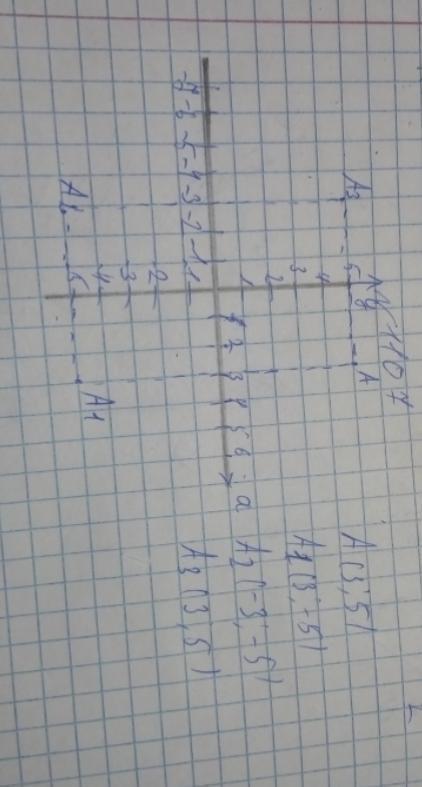 №1107
A (3; 5)
A1 (3; -5)
A2 (-3; -5)
A3 (3, 5)
A3
A
y
5
4
3
2
1
-7 -6 -5 -4 -3 -2 -1 1 2 3 4 5 6
a
-1
-2
-3
-4
-5
A2
A1